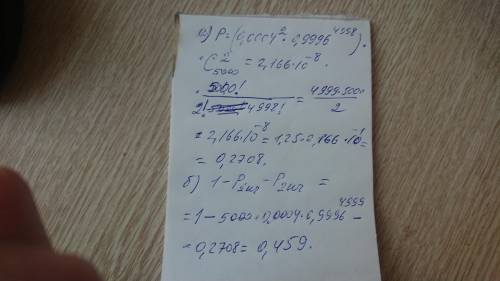 а) P = (0,0004² · 0,9996⁴⁹⁹⁸) ·
· C²₅₀₀₀ = 2,166·10⁻⁸ ·
· 5000! / 2! 4998! = 4999·5000 / 2
= 2,166·10⁻⁸ = 1,25·2,166·10⁻¹ =
= 0,2708.
б) 1 - P₁шт - P₂шт =
= 1 - 5000·0,0004·0,9996⁴⁹⁹⁹ -
- 0,2708 = 0,459.